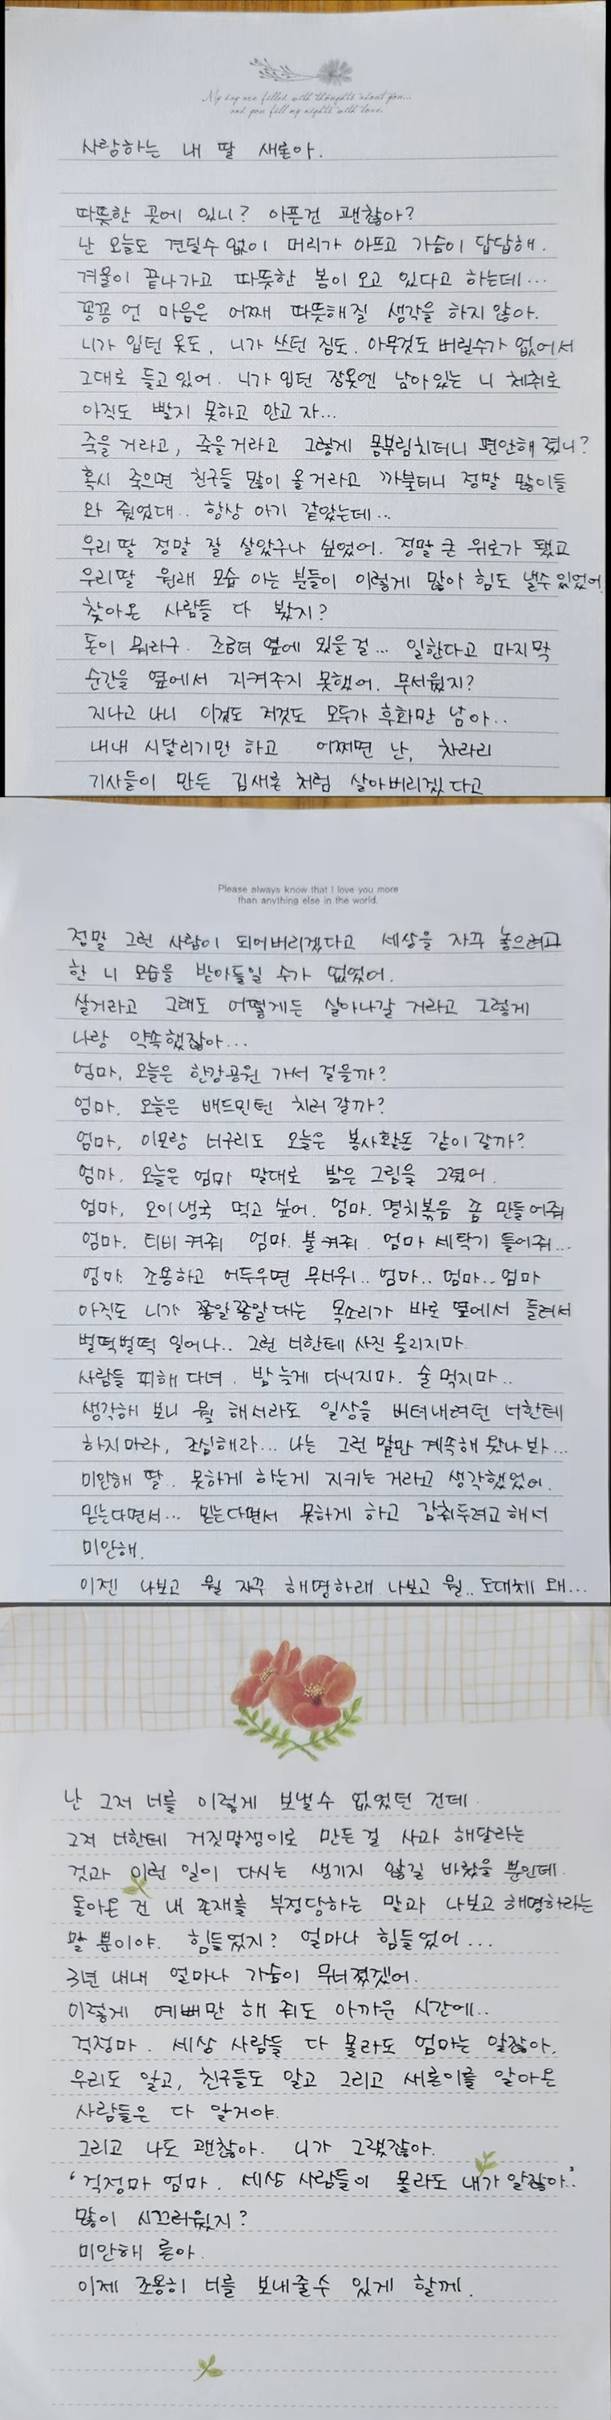 My day are filled with thoughts about you...
and you fill my nights with love.
사랑하는 내 딸 새론아.
따뜻한 곳에 있니? 아픈건 괜찮아?
난 오늘도 견딜수 없이 머리가 아프고 가슴이 답답해.
겨울이 끝나가고 따뜻한 봄이 오고 있다고 하는데...
꽁꽁 언 마음은 어째 따뜻해질 생각을 하지 않아.
니가 입던 옷도, 니가 쓰던 짐도. 아무것도 버릴수가 없어서
그대로 들고있어. 니가 입던 잠옷엔 남아있는 니 체취로
아직도 빨지 못하고 안고 자...
죽을거라고, 죽을거라고 그렇게 몸부림치더니 편안해 졌니?
혹시 죽으면 친구들 많이 올거라고 까불더니 정말 많이들
와 줬었대.. 항상 아기 같았는데...
우리 딸 정말 잘 살았구나 싶었어. 정말 큰 위로가 됐고
우리딸 원래 모습 아는 분들이 이렇게 많아 힘도 낼수 있었어
찾아온 사람들 다 봤지?
돈이 뭐라구. 조금더 옆에 있을 걸... 일한다고 마지막
순간을 옆에서 지켜주지 못했어. 무서웠지?
지나고 나니 이것도 저것도 모두가 후회만 남아..
내내 시달리기만 하고 어쩌면 난, 차라리
기사들이 만든 김새론 처럼 살아버리겠다고
Please always know that I love you more
than anything else in the world.
정말 그런 사람이 되어버리겠다고 세상을 자꾸 놓으려고
한 니 모습을 받아들일 수가 없었어.
살거라고 그래도 어떻게든 살아나갈 거라고 그렇게
나랑 약속했잖아...
엄마, 오늘은 한강공원 가서 걸을까?
엄마. 오늘은 배드민턴 치러 갈까?
엄마, 이모랑 너구리도 오늘은 봉사활동 같이갈까?
엄마. 오늘은 엄마 말대로 밝은 그림을 그렸어.
엄마, 오이냉국 먹고 싶어. 엄마. 멸치볶음 좀 만들어줘
엄마. 티비 켜줘 엄마. 불켜줘. 엄마 세탁기 틀어줘...
엄마. 조용하고 어두우면 무서워.. 엄마.. 엄마.. 엄마
아직도 니가 쫑알쫑알대는 목소리가 바로 옆에서 들려서
벌떡벌떡 일어나.. 그런 너한테 사진 올리지마.
사람들 피해 다녀. 밤 늦게 다니지마. 술 먹지마..
생각해 보니 뭘 해서라도 일상을 버텨내려던 너한테
하지마라, 조심해라... 나는 그런 말만 계속해 왔나봐...
미안해 딸.. 못하게 하는게 지키는 거라고 생각했었어.
믿는다면서... 믿는다면서 못하게 하고 감춰두려고해서
미안해.
이젠 나보고 뭘 자꾸 해명하래. 나보고 뭘.. 도대체 왜...
난 그저 너를 이렇게 보낼수 없었던 건데.
그저 너한테 거짓말쟁이로 만든걸 사과 해달라는
것과 이런 일이 다시는 생기지 않길 바랬을 뿐인데.
돌아온 건 내 존재를 부정당하는 말과 나보고 해명하라는
말 뿐이야. 힘들었지? 얼마나 힘들었어...
3년 내내 얼마나 가슴이 무너졌겠어.
이렇게 예뻐만 해 줘도 아까운 시간에..
걱정마. 세상 사람들 다 몰라도 엄마는 알잖아.
우리도 알고, 친구들도 알고 그리고 새론이를 알아온
사람들은 다 알거야.
그리고 나도 괜찮아. 니가 그랬잖아.
'걱정마 엄마. 세상 사람들이 몰라도 내가 알잖아.'
많이 시끄러웠지?
미안해 론아.
이제 조용히 너를 보내줄수 있게 할께.